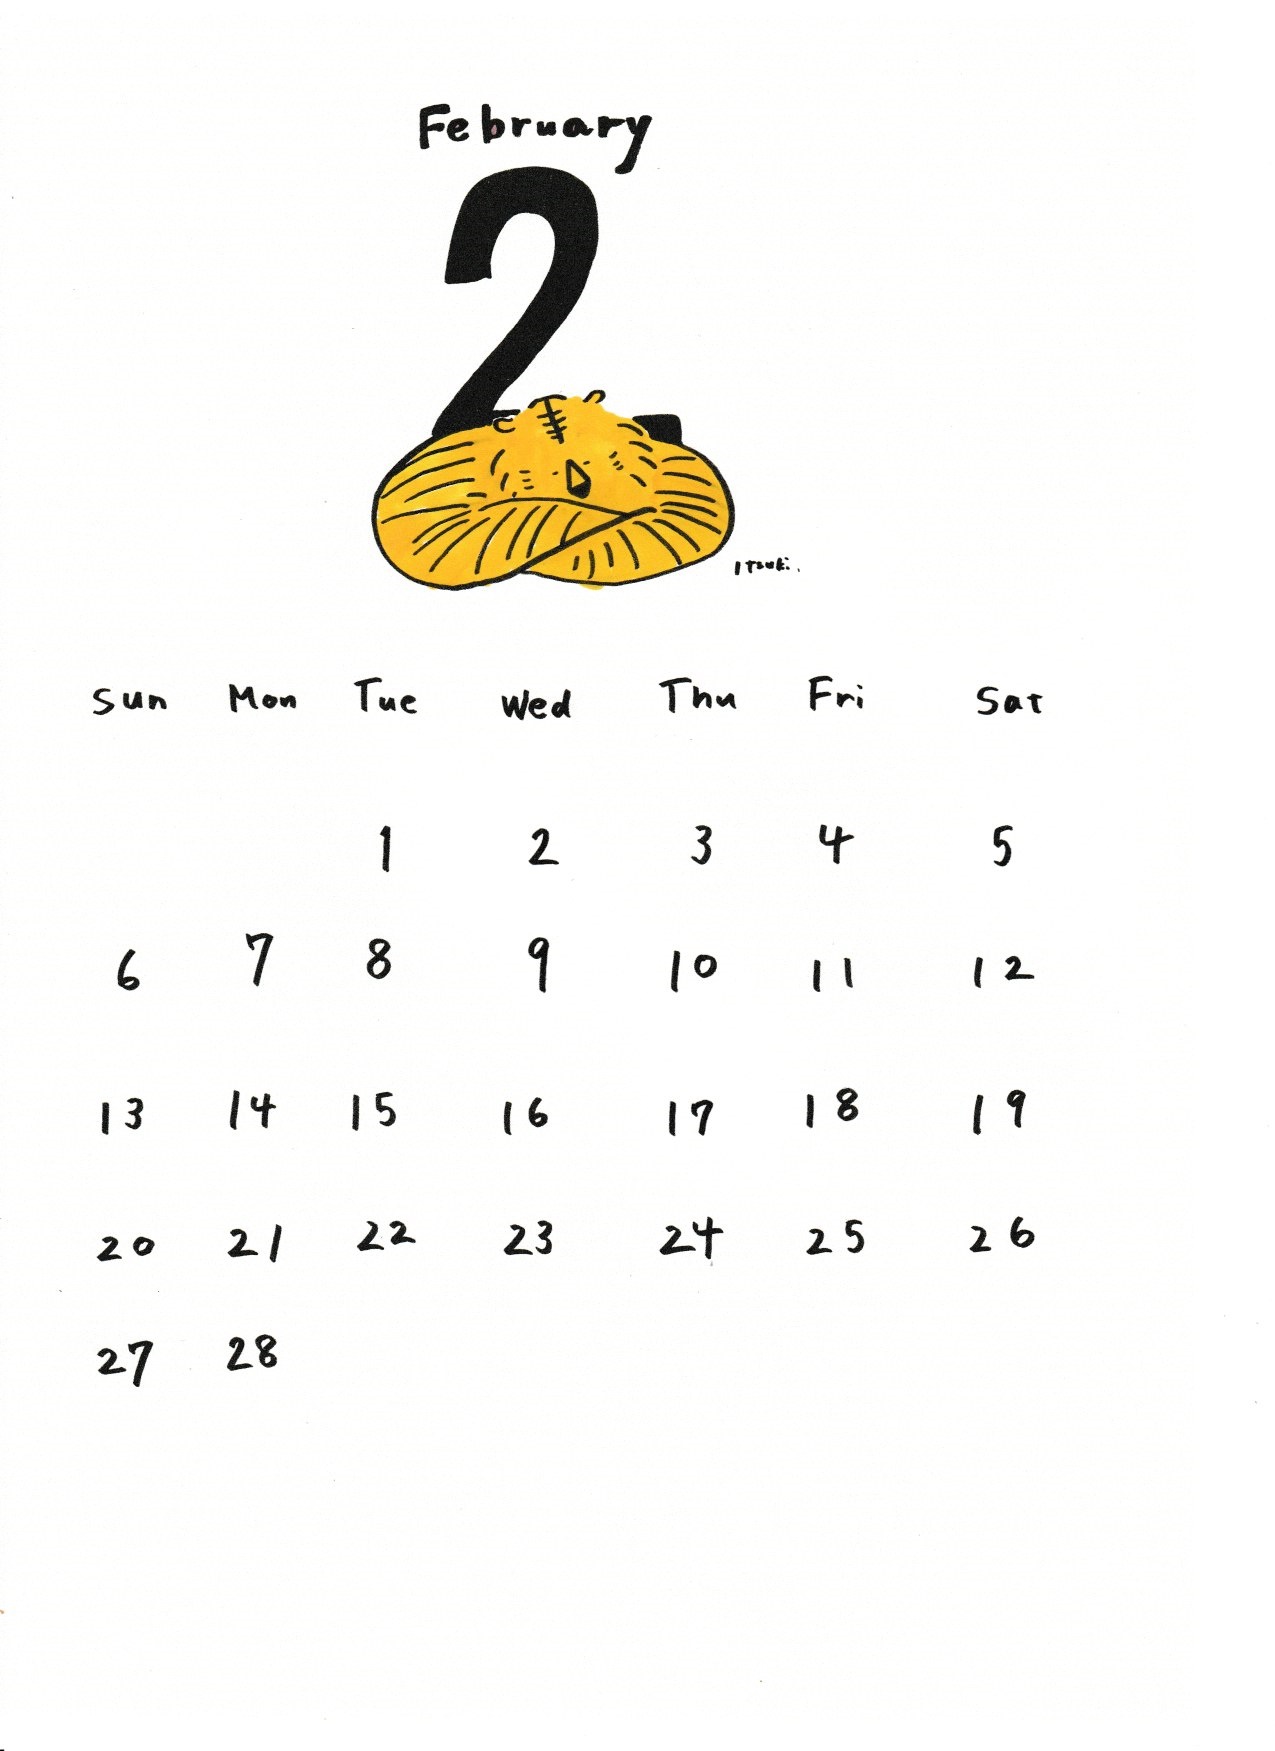 February
2
Itsuki.
Sun Mon Tue Wed Thu Fri Sat
1 2 3 4 5
6 7 8 9 10 11 12
13 14 15 16 17 18 19
20 21 22 23 24 25 26
27 28